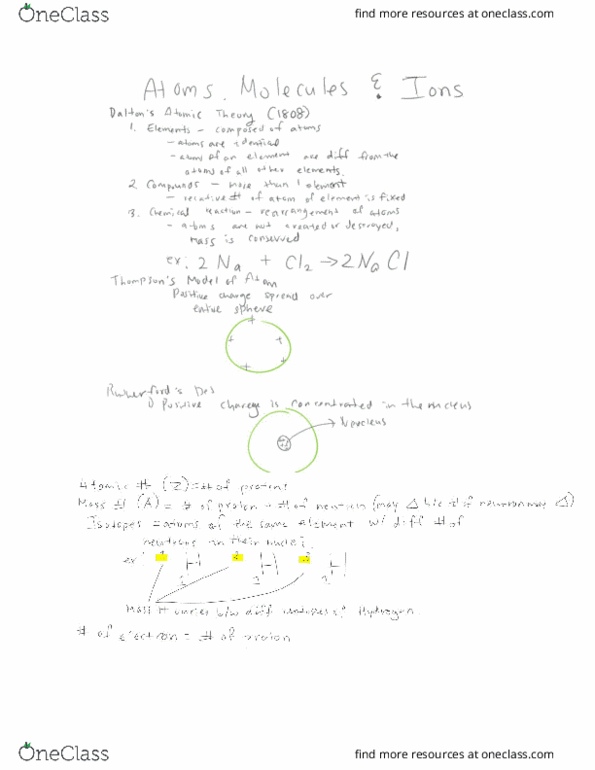 OneClass
find more resources at oneclass.com
Atoms, Molecules & Ions
Dalton's Atomic Theory (1808)
1. Elements - composed of atoms
- atoms are identical
- atoms of an element are diff from the
atoms of all other elements.
2. Compounds - more than 1 element
- relative # of atom of element is fixed
3. Chemical reaction - rearrangement of atoms
- atoms are not created or destroyed,
mass is conserved
ex: 2 Na + Cl2 → 2 Na Cl
Thompson's Model of Atom
Positive charge spread over
entire sphere
+
+ +
+ +
Rutherford's
Positive charge is concentrated in the nucleus
Nucleus
Atomic # (Z) = # of protons
Mass # (A) = # of proton + # of neutron (may Δ b/c # of neutron may Δ)
Isotopes = atoms of the same element w/ diff # of
neutrons in their nuclei
ex: 1 H 2 H 3 H
1 1 1
Mass # varies b/w diff of Hydrogen.
# of electron = # of proton
OneClass
find more resources at oneclass.com